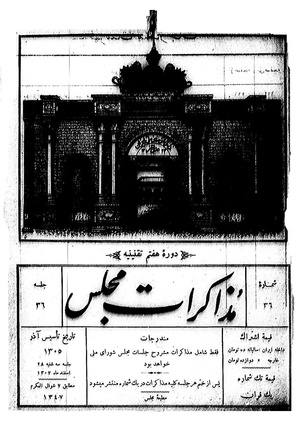 دورهٔ هفتم تقنینیه
جلسه
۳۶
مذاکرات مجلس
شماره
۳۶
تاریخ تأسیس آذر
۱۳۰۵
جلسه سه شنبه ۲۸
اسفند ماه ۱۳۰۷
مطابق ۷ شوال المکرم
۱۳۴۷
مندرجات
فقط شامل مذاکرات مشروح جلسات مجلس شورای ملی
خواهد بود
پس از ختم هر جلسه کلیه مذاکرات در یک شماره منتشر میشود
مطبعهٔ مجلس
قیمت اشتراک
داخله ایران سالیانه ده تومان
خارجه » دوازده تومان
قیمت تك شماره
یك قران